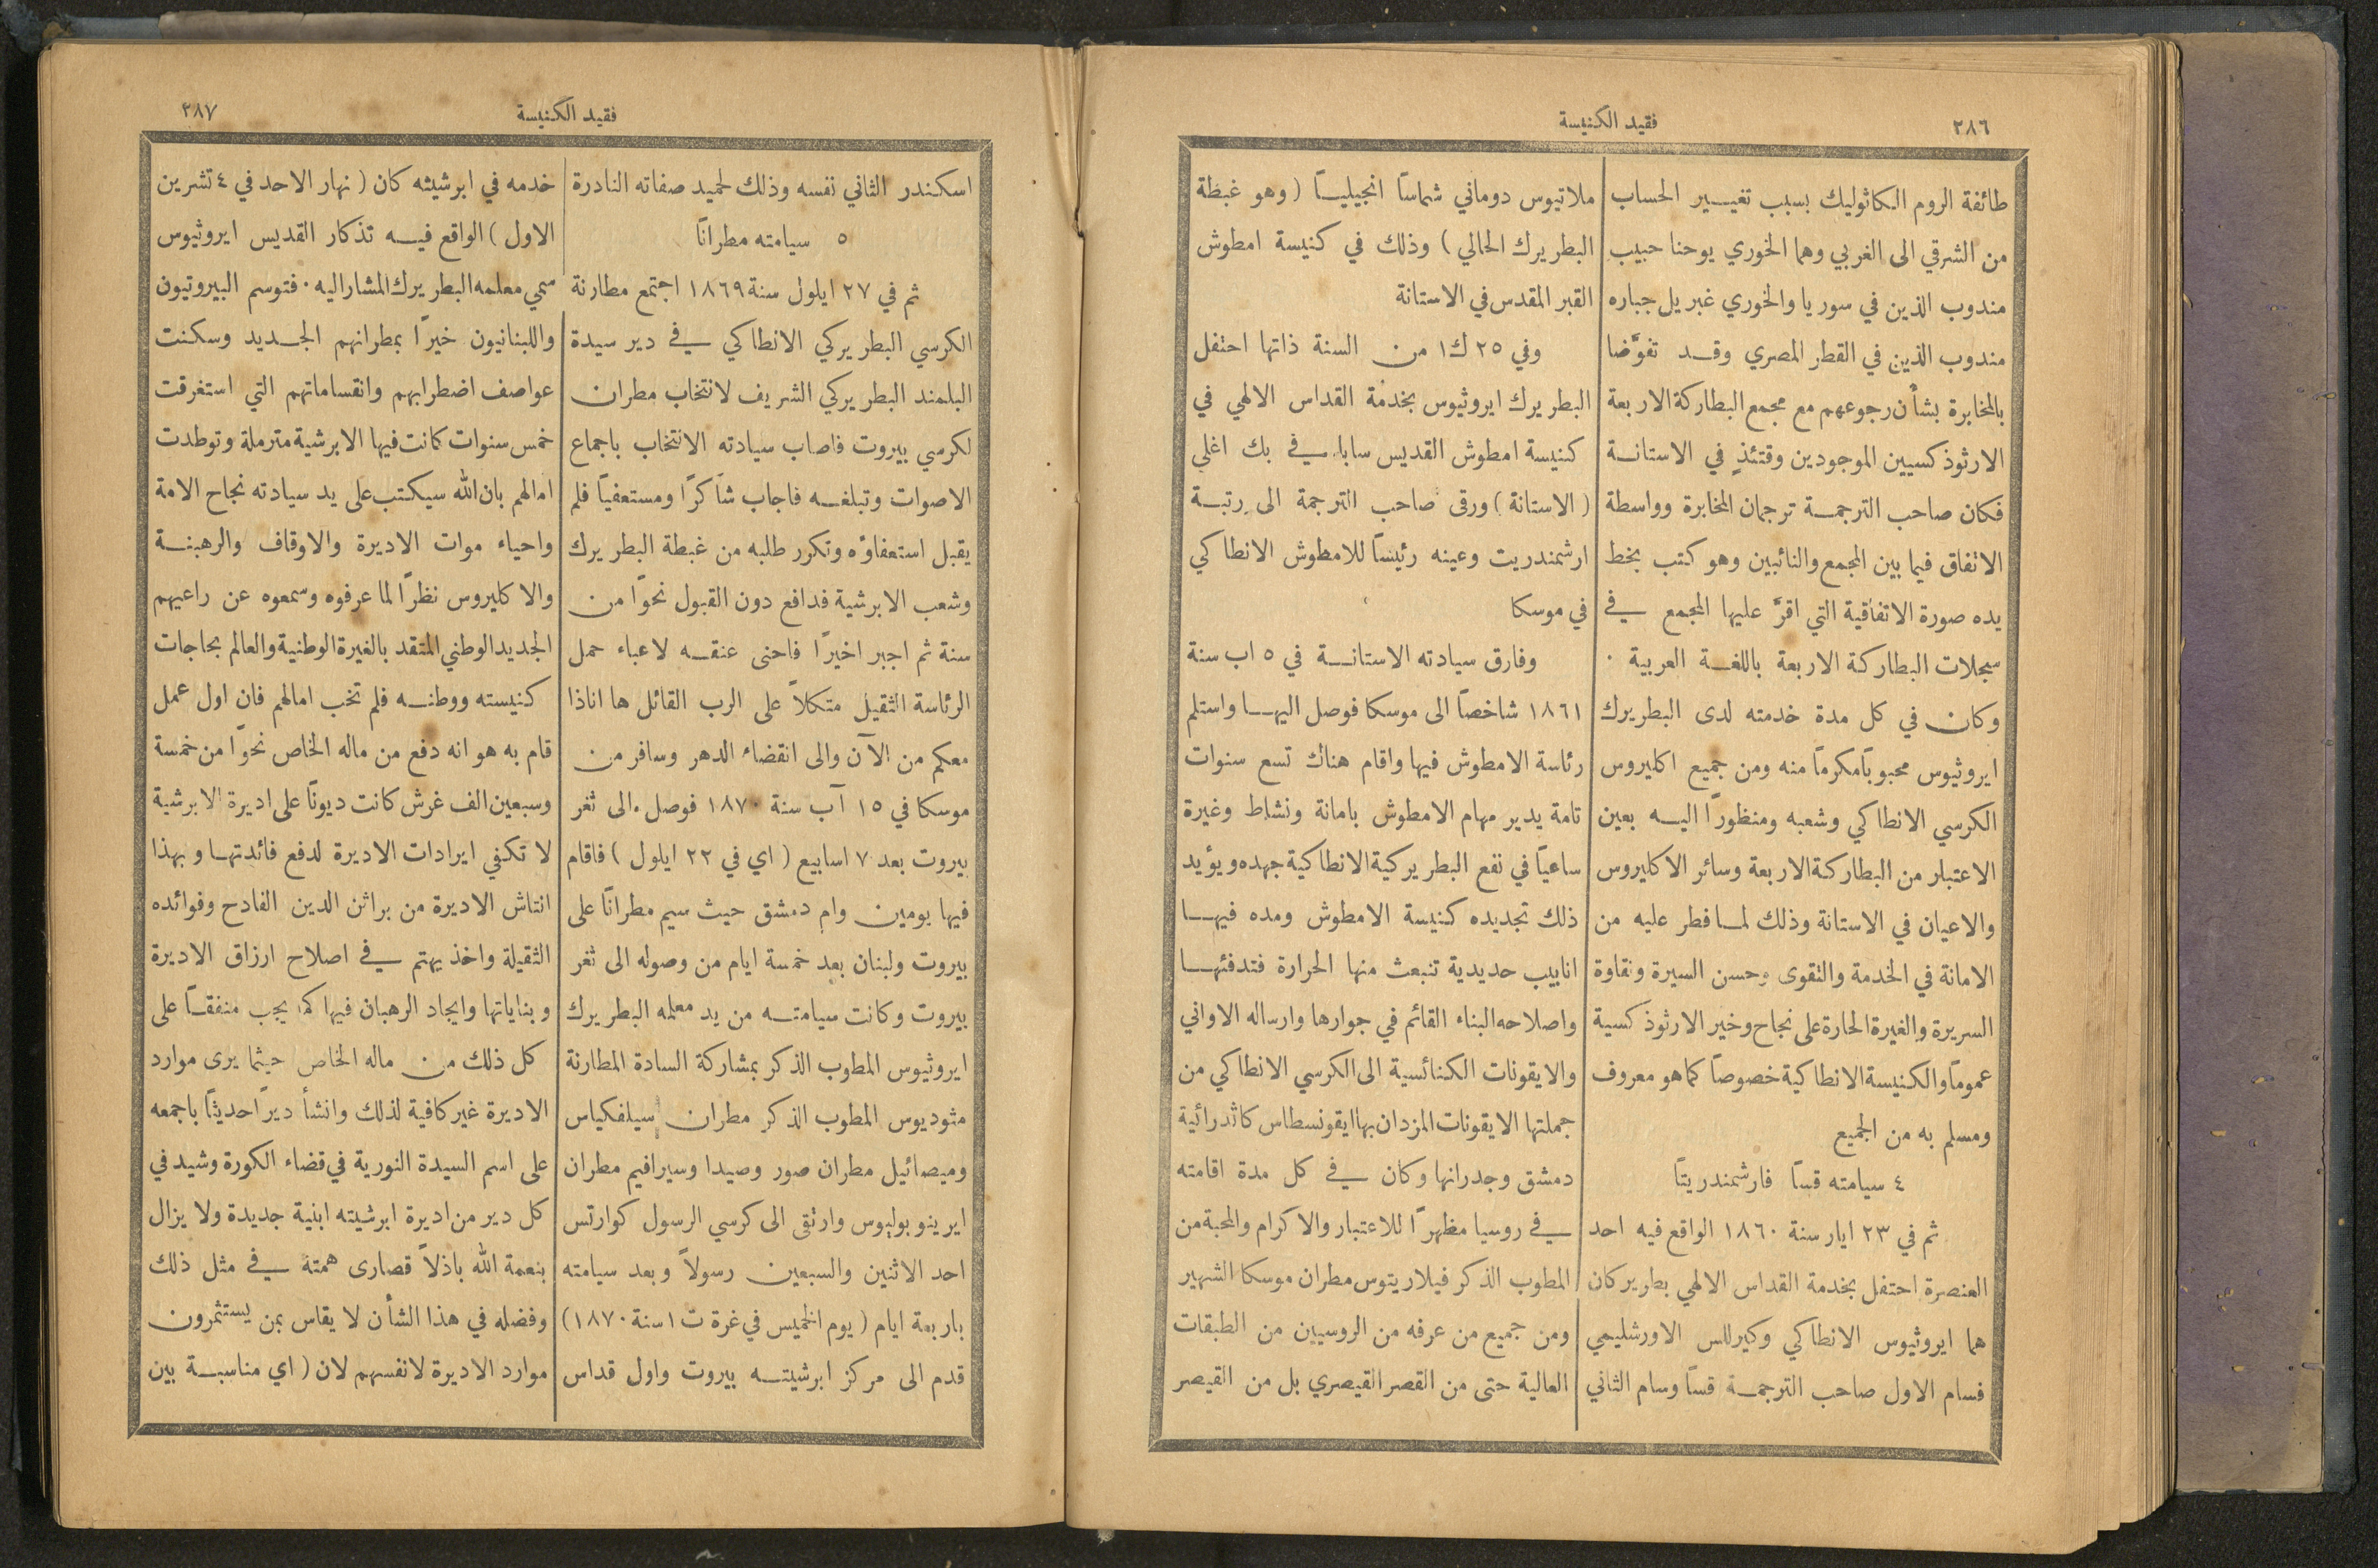 ٢٨٦
فقيد الكنيسة
طائفة الروم الكاثوليك بسبب تغيير الحساب
من الشرقي الى الغربي وهما الخوري يوحنا حبيب
مندوب الذين في سوريا والخوري غبريل جباره
مندوب الذين في القطر المصري وقد تفوَّضا
بالمخابرة بشأن رجوعهم مع مجمع البطاركة الاربعة
الارثوذكسيين الموجودين وقتئذٍ في الاستانة
فكان صاحب الترجمة ترجمان المخابرة وواسطة
الاتفاق فيما بين المجمع والنائبين وهو كتب بخط
يده صورة الاتفاقية التي اقرَّ عليها المجمع في
سجلات البطاركة الاربعة باللغة العربية .
وكان في كل مدة خدمته لدى البطريرك
ايروثيوس محبوباً مكرماً منه ومن جميع اكليروس
الكرسي الانطاكي وشعبه ومنظوراً اليه بعين
الاعتبار من البطاركة الاربعة وسائر الاكليروس
والاعيان في الاستانة وذلك لما فطر عليه من
الامانة في الخدمة والتقوى وحسن السيرة ونقاوة
السريرة والغيرة الحارة على نجاح وخير الارثوذكسية
عموماً والكنيسة الانطاكية خصوصاً كما هو معروف
ومسلم به من الجميع
٤ سيامته قساً فارشمندريتاً
ثم في ٢٣ ايار سنة ١٨٦٠ الواقع فيه احد
العنصرة احتفل بخدمة القداس الالهي بطريركان
هما ايروثيوس الانطاكي وكيرللس الاورشليمي
فسام الاول صاحب الترجمة قساً وسام الثاني
ملاتيوس دوماني شماساً انجيلياً (وهو غبطة
البطريرك الحالي) وذلك في كنيسة امطوش
القبر المقدس في الاستانة
وفي ٢٥ ك١ من السنة ذاتها احتفل
البطريرك ايروثيوس بخدمة القداس الالهي في
كنيسة امطوش القديس سابا في بك اغلي
(الاستانة) ورقى صاحب الترجمة الى رتبة
ارشمندريت وعينه رئيساً للامطوش الانطاكي
في موسكا
وفارق سيادته الاستانة في ٥ اب سنة
١٨٦١ شاخصاً الى موسكا فوصل اليها واستلم
رئاسة الامطوش فيها واقام هناك تسع سنوات
تامة يدير مهام الامطوش بامانة ونشاط وغيرة
ساعياً في نفع البطريركية الانطاكية جهده ويؤيد
ذلك تجديده كنيسة الامطوش ومده فيها
انابيب حديدية تنبعث منها الحرارة فتدفئها
واصلاحه البناء القائم في جوارها وارساله الاواني
والايقونات الكنائسية الى الكرسي الانطاكي من
جملتها الايقونات المزدان بها ايقونسطاس كاثدرائية
دمشق وجدرانها وكان في كل مدة اقامته
في روسيا مظهراً للاعتبار والاكرام والمحبة من
المطوب الذكر فيلاريتوس مطران موسكا الشهير
ومن جميع من عرفه من الروسيين من الطبقات
العالية حتى من القصر القيصري بل من القيصر
فقيد الكنيسة
٢٨٧
اسكندر الثاني نفسه وذلك لحميد صفاته النادرة
٥ سيامته مطراناً
ثم في ٢٧ ايلول سنة ١٨٦٩ اجتمع مطارنة
الكرسي البطريركي الانطاكي في دير سيدة
البلمند البطريركي الشريف لانتخاب مطران
لكرسي بيروت فاصاب سيادته الانتخاب باجماع
الاصوات وتبلغه فاجاب شاكراً ومستعفياً فلم
يقبل استعفاؤه وتكرر طلبه من غبطة البطريرك
وشعب الابرشية فدافع دون القبول نحواً من
سنة ثم اجبر اخيراً فاحنى عنقه لاعباء حمل
الرئاسة الثقيل متكلاً على الرب القائل ها اناذا
معكم من الآن والى انقضاء الدهر وسافر من
موسكا في ١٥ آب سنة ١٨٧٠ فوصل الى ثغر
بيروت بعد ٧ اسابيع (اي في ٢٢ ايلول) فاقام
فيها يومين وام دمشق حيث سيم مطراناً على
بيروت ولبنان بعد خمسة ايام من وصوله الى ثغر
بيروت وكانت سيامته من يد معلمه البطريرك
ايروثيوس المطوب الذكر بمشاركة السادة المطارنة
مثوديوس المطوب الذكر مطران سيلفكياس
وميصائيل مطران صور وصيدا وسيرافيم مطران
ايرينوبوليوس وارتقى الى كرسي الرسول كوارتس
احد الاثنين والسبعين رسولاً وبعد سيامته
باربعة ايام (يوم الخميس في غرة ت١ سنة ١٨٧٠)
قدم الى مركز ابرشيته بيروت واول قداس
خدمه في ابرشيته كان (نهار الاحد في ٤ تشرين
الاول) الواقع فيه تذكار القديس ايروثيوس
سمي معلمه البطريرك المشار اليه . فتوسم البيروتيون
واللبنانيون خيراً بمطرانهم الجديد وسكنت
عواصف اضطرابهم وانقساماتهم التي استغرقت
خمس سنوات كانت فيها الابرشية مترملة وتوطدت
امالهم بان الله سيكتب على يد سيادته نجاح الامة
واحياء موات الاديرة والاوقاف والرهبنة
والاكليروس نظراً لما عرفوه وسمعوه عن راعيهم
الجديد الوطني المتقد بالغيرة الوطنية والعالم بحاجات
كنيسته ووطنه فلم تخب امالهم فان اول عمل
قام به هو انه دفع من ماله الخاص نحواً من خمسة
وسبعين الف غرش كانت ديوناً على اديرة الابرشية
لا تكفي ايرادات الاديرة لدفع فائدتها وبهذا
انتاش الاديرة من براثن الدين الفادح وفوائده
الثقيلة واخذ يهتم في اصلاح ارزاق الاديرة
وبناياتها وايجاد الرهبان فيها كما يجب منفقاً على
كل ذلك من ماله الخاص حيثما يرى موارد
الاديرة غير كافية لذلك وانشأ ديراً حديثاً باجمعه
على اسم السيدة النورية في قضاء الكورة وشيد في
كل دير من اديرة ابرشيته ابنية جديدة ولا يزال
بنعمة الله باذلاً قصارى همته في مثل ذلك
وفضله في هذا الشأن لا يقاس بمن يستثمرون
موارد الاديرة لانفسهم لان (اي مناسبة بين